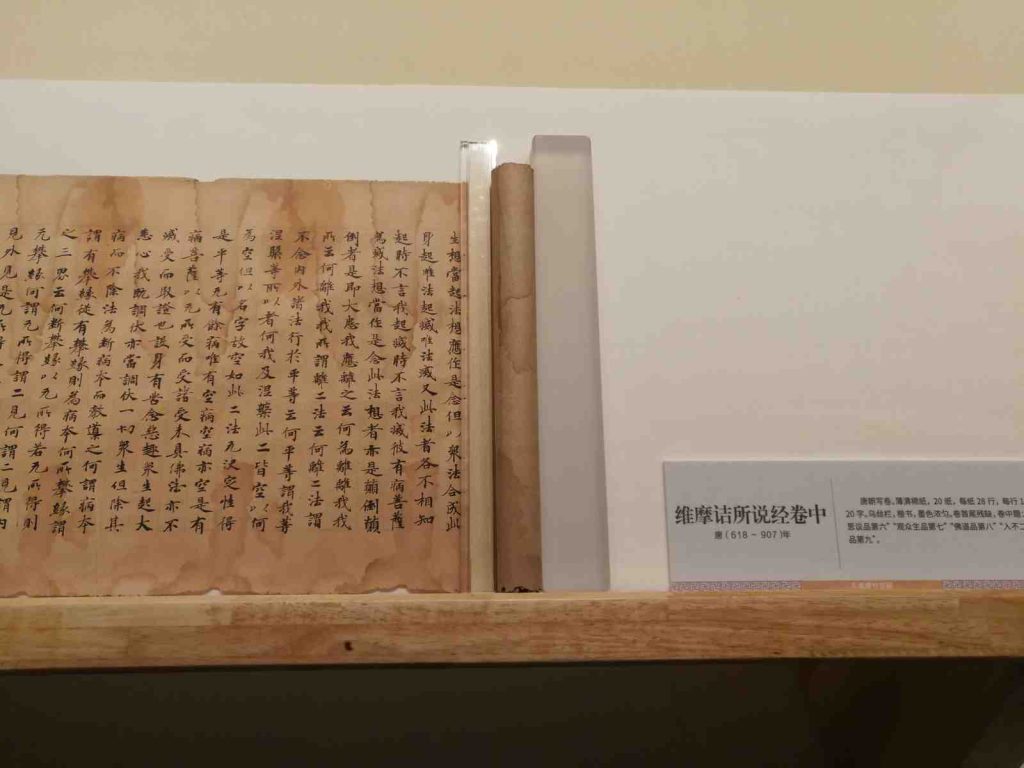 生想當起法想應作是念但以衆法合成此
身起唯法起滅唯法滅又此法者各不相知
起時不言我起滅時不言我滅彼有病菩薩
為滅法想當作是念此法想者亦是顛倒顛
倒者是即大患我應離之云何為離離我我
所云何離我我所謂離二法云何離二法謂
不念内外諸法行於平等云何平等謂我等
涅槃等所以者何我及涅槃此二皆空以何
為空但以名字故空如此二法无決定性得
是平等无有餘病唯有空病空病亦空是有
病菩薩以无所受而受諸受未具佛法亦不
滅受而取證也設身有苦當念惡趣衆生起大
悲心我既調伏亦當調伏一切衆生但除其
病而不除法為斷病本而教導之何謂病本
謂有攀緣從有攀緣則為病本何所攀緣謂
之三界云何斷攀緣以无所得若无所得則
无攀緣何謂无所得謂二見何謂二見謂内
見外見是无所得
维摩诘所说经卷中
唐（618～907）年
唐朝写卷，薄潢棉纸，20 纸，每纸 28 行，每行 1
20 字，乌丝栏，楷书，墨色浓匀，卷首尾残缺，卷中题
思议品第六”“观众生品第七”“佛道品第八”“入不二
品第九”。